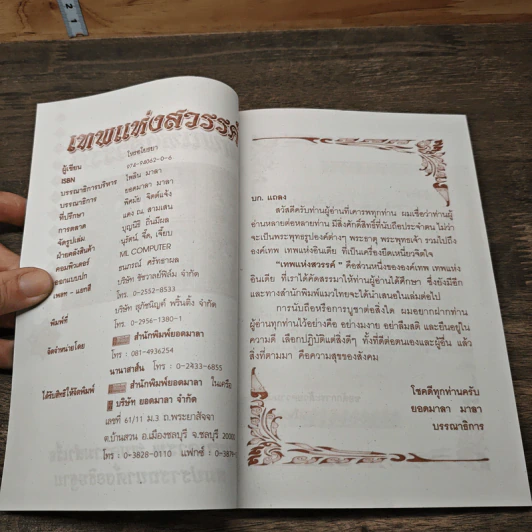 2
1
เทพแห่งสวรรค์
ผู้เขียน ไทรอโยธยา
ISBN 974-94062-0-6
บรรณาธิการบริหาร ไพลิน มาลา
บรรณาธิการ ยอดมาลา มาลา
ที่ปรึกษา พิศมัย จิตต์แจ้ง
การตลาด แดง ณ สามเสน
จัดรูปเล่ม บุญนิธิ ถิ่นมีผล
ฝ่ายคลังสินค้า นุรัตน์ จี๊ด, เจี๊ยบ
คอมพิวเตอร์ ML COMPUTER
ออกแบบปก ธนภรณ์ ศรีทธาผล
เพลท - แยกสี บริษัท ชัชวาลย์ฟิล์ม จำกัด
โทร : 0-2552-8533
พิมพ์ที่ บริษัท สุภัชนิญค์ พริ้นติ้ง จำกัด
โทร : 0-2956-1380-1
จัดจำหน่ายโดย สำนักพิมพ์ยอดมาลา
โทร : 081-4936254
นานาสาส์น โทร : 0-2433-6855
ได้รับสิทธิ์ให้จัดพิมพ์ สำนักพิมพ์ยอดมาลา ในเครือ
บริษัท ยอดมาลา จำกัด
เลขที่ 61/11 ม.3 ถ.พระยาสัจจา
ต.บ้านสวน อ.เมืองชลบุรี จ.ชลบุรี 20000
โทร : 0-3828-0110 แฟกซ์ : 0-3879-
บก. แถลง
สวัสดีครับท่านผู้อ่านที่เคารพทุกท่าน ผมเชื่อว่าท่านผู้
อ่านหลายต่อหลายท่าน มีสิ่งศักดิ์สิทธิ์ที่นับถือประจำตน ไม่ว่า
จะเป็นพระพุทธรูปองค์ต่างๆ พระธาตุ พระพุทธเจ้า รวมไปถึง
องค์เทพ เทพแห่งอินเดีย ที่เป็นเครื่องยึดเหนี่ยวจิตใจ
"เทพแห่งสวรรค์" คือส่วนหนึ่งขององค์เทพ เทพแห่ง
อินเดีย ที่เราได้คัดสรรมาให้ท่านผู้อ่านได้ศึกษา ซึ่งยังมีอีก
และทางสำนักพิมพ์แมวไทยจะได้นำเสนอในเล่มต่อไป
การนับถือหรือการบูชาต่อสิ่งใด ผมอยากฝากท่าน
ผู้อ่านทุกท่านไว้อย่างคือ อย่างมงาย อย่าลืมสติ และยืนอยู่ใน
ความดี เลือกปฏิบัติแต่สิ่งดีๆ ทั้งที่ดีต่อตนเองและผู้อื่น แล้ว
สิ่งที่ตามมา คือความสุขของสังคม
โชคดีทุกท่านครับ
ยอดมาลา มาลา
บรรณาธิการ